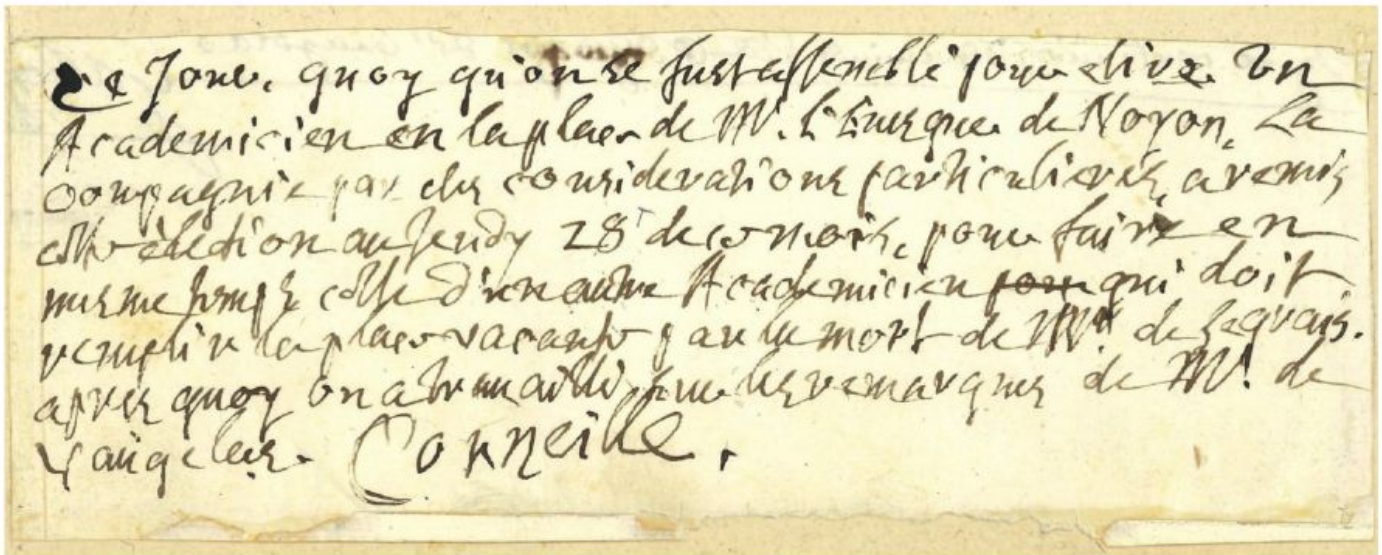 Ce Jour. quoy qu'on se fust assemblé pour elire. Un
Academicien en la place de Mr. l'Euesque de Noyon, La
Compagnie par des considerations particulieres, a remis
cette election au Jeudy 28 de ce mois, pour faire en
mesme temps celle d'un autre Academicien pour qui doit
remplir la place vacante par la mort de Mr. de Segrais.
apres quoy on a trauaillé sur les remarques de Mr. de
Vaugelas. Corneille.